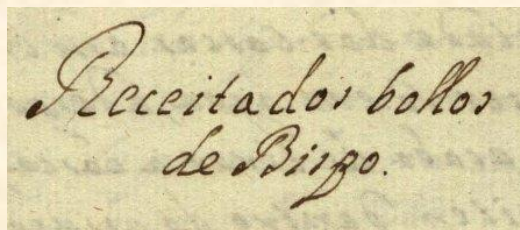 Receita dos bollos
de Bispo.